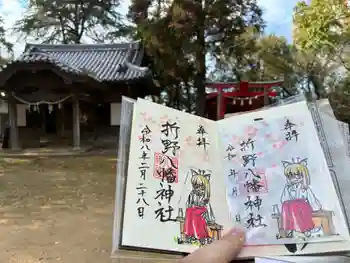 奉拝
折野八幡神社
令和 年 月 日
奉拝
折野八幡神社
令和八年二月二十八日